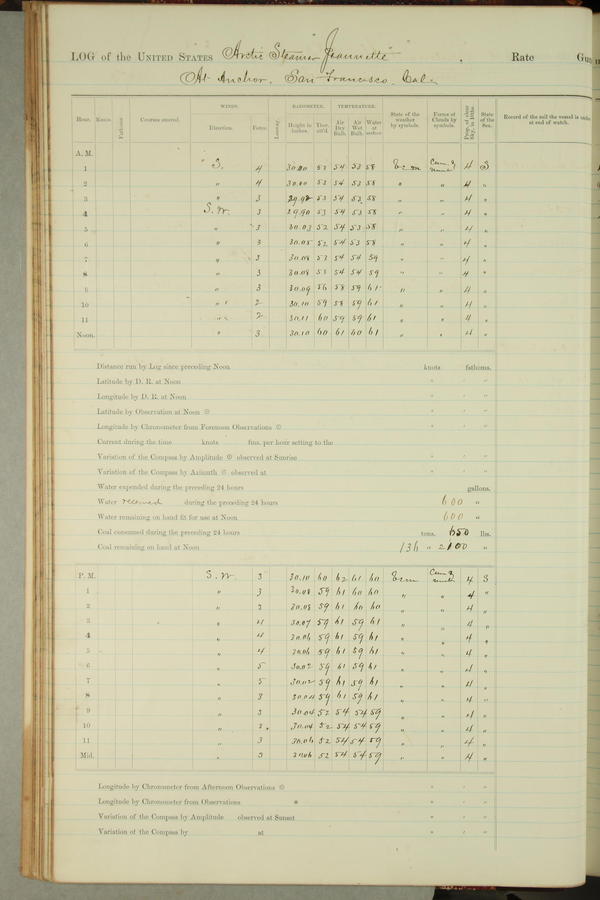 LOG of the UNITED STATES Arctic Steamer "Jeannette" , Rate Gu
At Anchor. San Francisco. Cal.
WINDS. BAROMETER. TEMPERATURE.
Hour. Knots. Fathoms. Courses steered. Direction. Force. Leeway. Height in inches. Ther. att'd. Air Dry Bulb. Air Wet Bulb. Water at surface. State of the weather by symbols. Forms of Clouds by symbols. Prop. of clear Sky, in 10ths. State of the Sea. Record of the sail the vessel is under at end of watch.
A. M.
1 S. 4 30.00 53 54 53 58 4 S
2 " 4 30.00 53 54 53 58 " " 4 "
3 " 3 29.92 53 54 53 58 " " 4 "
4 S.W. 3 29.90 53 54 53 58 " " 4 "
5 " 3 30.03 52 54 53 58 " " 4 "
6 " 3 30.05 52 54 53 58 " " 4 "
7 " 3 30.08 53 54 54 59 " " 4 "
8 " 3 30.08 53 54 54 59 " " 4 "
9 " 3 30.09 56 58 59 61 " " 4 "
10 " 2 30.10 59 58 59 61 " " 4 "
11 " 2 30.11 60 59 59 61 " " 4 "
Noon. " 3 30.10 60 61 60 61 " " 4 "
Distance run by Log since preceding Noon knots fathoms.
Latitude by D. R. at Noon ° ' "
Longitude by D. R. at Noon ° ' "
Latitude by Observation at Noon ☉ ° ' "
Longitude by Chronometer from Forenoon Observations ☉ ° ' "
Current during the time knots fms. per hour setting to the
Variation of the Compass by Amplitude ☉ observed at Sunrise ° ' "
Variation of the Compass by Azimuth ☉ observed at ° ' "
Water expended during the preceding 24 hours gallons.
Water received during the preceding 24 hours 600 "
Water remaining on hand fit for use at Noon 600 "
Coal consumed during the preceding 24 hours tons. 650 lbs.
Coal remaining on hand at Noon 136 " 2100 "
P. M. S.W. 3 30.10 60 62 61 60 4 S
1 " 3 30.08 59 61 60 60 " " 4 "
2 " 3 30.08 59 61 60 60 " " 4 "
3 " 4 30.07 59 61 59 61 " " 4 "
4 " 4 30.06 59 61 59 61 " " 4 "
5 " 4 30.06 59 61 59 61 " " 4 "
6 " 5 30.02 59 61 59 61 " " 4 "
7 " 5 30.02 59 61 59 61 " " 4 "
8 " 3 30.04 59 61 59 61 " " 4 "
9 " 3 30.04 52 54 54 59 " " 4 "
10 " 3 30.04 52 54 54 59 " " 4 "
11 " 3 30.06 52 54 54 59 " " 4 "
Mid. " 3 30.06 52 54 54 59 " " 4 "
Longitude by Chronometer from Afternoon Observations ☉ ° ' "
Longitude by Chronometer from Observations * ° ' "
Variation of the Compass by Amplitude observed at Sunset ° ' "
Variation of the Compass by at ° ' "